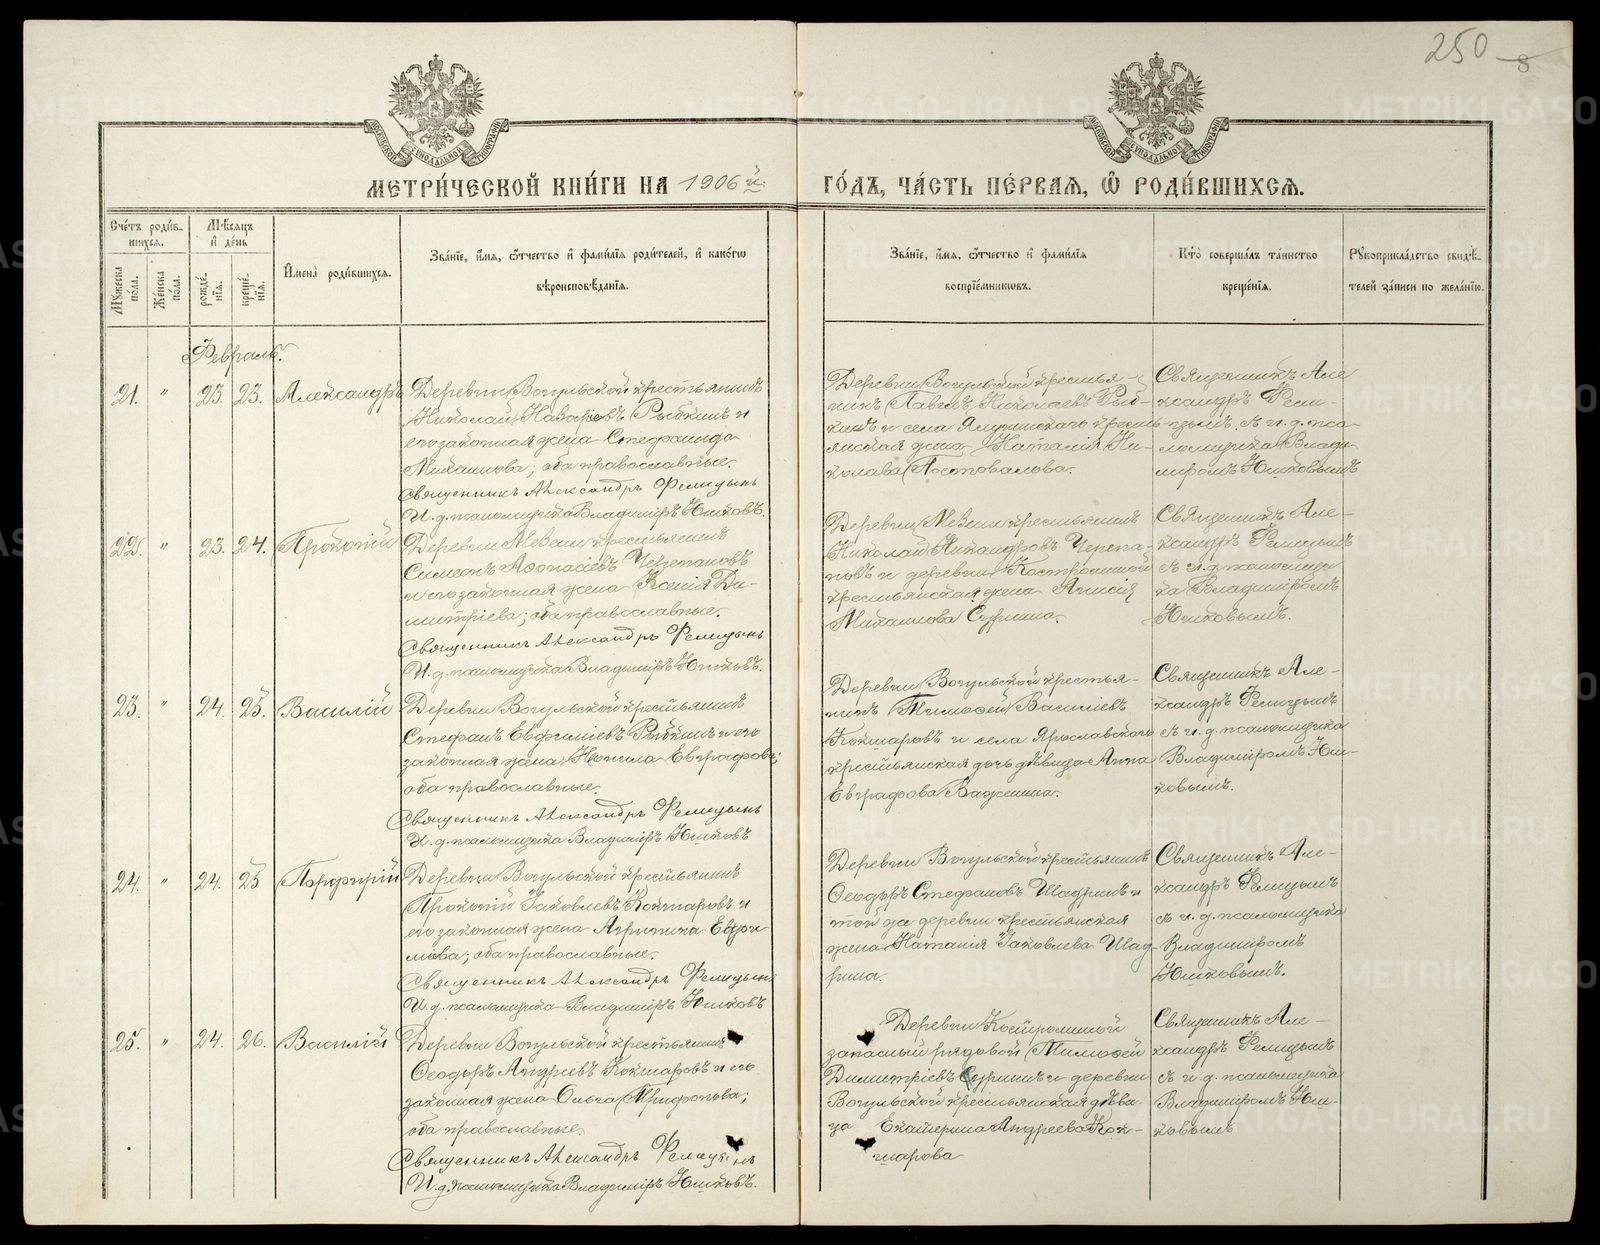 250
8
МОСКОВСКОЙ СѴНОДАЛЬНОЙ ТИПОГРАФІИ
МОСКОВСКОЙ СѴНОДАЛЬНОЙ ТИПОГРАФІИ
МЕТРИ́ЧЕСКОЙ КНИ́ГИ НА 1906 й ГО́ДЪ, ЧА́СТЬ ПЕ́РВАЯ, Ѽ РОДИ́ВШИХСЯ.
Сче́тъ роди́вшихся.
Мꙋ́жеска по́ла.
Же́нска по́ла.
Мѣ́сяцъ и҆ де́нь
рожде́нїя.
креще́нїя.
И҆мена̀ роди́вшихся.
Зва́нїе, и҆́мя, ѻ҆́тчество и҆ фамѝлїя роди́телей, и҆ како́гѡ
вѣроисповѣ́данїя.
Зва́нїе, и҆́мя, ѻ҆́тчество и҆ фамѝлїя
воспрїе́мникѡвъ.
Кто̀ соверша́лъ та́инство
креще́нїя.
Рꙋкоприкла́дство свидѣ́телей за́писи по жела́нїю.
Февраль.
21. " 23. 23. Александръ
Деревни Вогульской крестьянинъ
Николай Назаріевъ Рыбкинъ и
его законная жена Стефанида
Михаилова; оба православные.
Священникъ Александръ Фелицынъ
И. д. псаломщика Владиміръ Юшковъ.
Деревни Вогульской крестья-
нинъ Павелъ Николаевъ Рыб-
кинъ и села Ялунинскаго кресть-
янская жена Наталія Ни-
колаева Постовалова.
Священникъ Але-
ксандръ Фели-
цынъ съ и. д. пса-
ломщика Влади-
міромъ Юшковымъ
22. " 23. 24. Прокопій
Деревни Мезени крестьянинъ
Симеонъ Аѳонасіевъ Черепановъ
и его законная жена Ксенія Ди-
митріева; оба православные.
Священникъ Александръ Фелицынъ
И. д. псаломщика Владиміръ Юшковъ.
Деревни Мезени крестьянинъ
Николай Никандровъ Черепа-
новъ и деревни Костромшиной
крестьянская жена Анисія
Михаилова Сурнина.
Священникъ Але-
ксандръ Фелицынъ
съ и. д. псаломщи
ка Владиміромъ
Юшковымъ.
23. " 24. 25. Василій
Деревни Вогульской крестьянинъ
Стефанъ Евфиміевъ Рыбкинъ и его
законная жена Неонила Евграфова;
оба православные.
Священникъ Александръ Фелицынъ
И. д. псаломщика Владиміръ Юшковъ
Деревни Вогульской крестья-
нинъ Тимоѳей Василіевъ
Кокшаровъ и села Ярославскаго
крестьянская дочь дѣвица Анна
Евграфова Важенина.
Священникъ Але-
ксандръ Фелицынъ
съ и. д. псаломщика
Владиміромъ Юш-
ковымъ.
24. " 24. 25 Порфирій
Деревни Вогульской крестьянинъ
Прокопій Іаковлевъ Кокшаровъ и
его законная жена Агрипина Евфи
мова; оба православные.
Священникъ Александръ Фелицынъ
И. д. псаломщика Владиміръ Юшковъ
Деревни Вогульской крестьянинъ
Ѳеодоръ Стефановъ Шадринъ и
той же деревни крестьянская
жена Наталія Іаковлева Шад-
рина.
Священникъ Але-
ксандръ Фелицынъ
съ и. д. псаломщика
Владиміромъ
Юшковымъ.
25. " 24. 26. Василій
Деревни Вогульской крестьянинъ
Ѳеодоръ Андріевъ Кокшаровъ и его
законная жена Ольга Трифонова;
оба православные.
Священникъ Александръ Фелицынъ
И. д. псаломщика Владиміръ Юшковъ.
Деревни Костромшиной
запасный рядовой Тимоѳей
Димитріевъ Сурнинъ и деревни
Вогульской крестьянская дѣви
ца Екатерина Андреева Кок-
шарова
Священникъ Але-
ксандръ Фелицынъ
съ и. д. псаломщика
Владиміромъ Юш-
ковымъ
METRIKI.GASO-URAL.RU